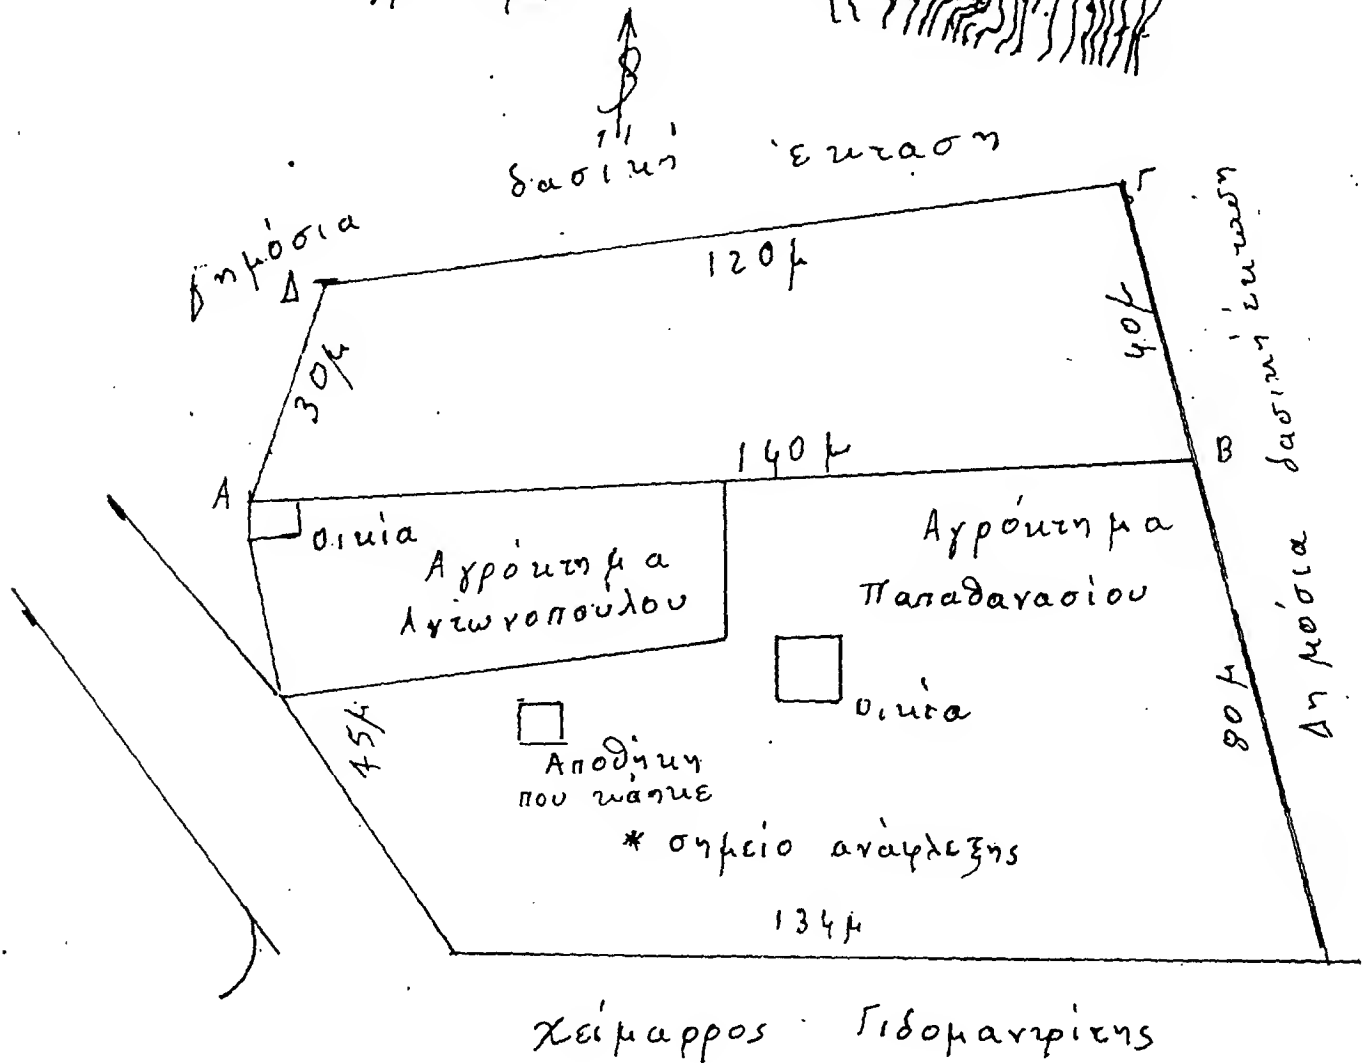 β
δασική έκταση
Δημόσια
Δ
Γ
120μ
30μ
40μ
Α
140μ
Β
οικία
Αγρόκτημα
Αντωνοπούλου
Αγρόκτημα
Παπαθανασίου
οικία
45μ
Αποθήκη
που κάηκε
* σημείο ανάφλεξης
80μ
Δημόσια δασική έκταση
134μ
χείμαρρος Γιδομαντρίτης